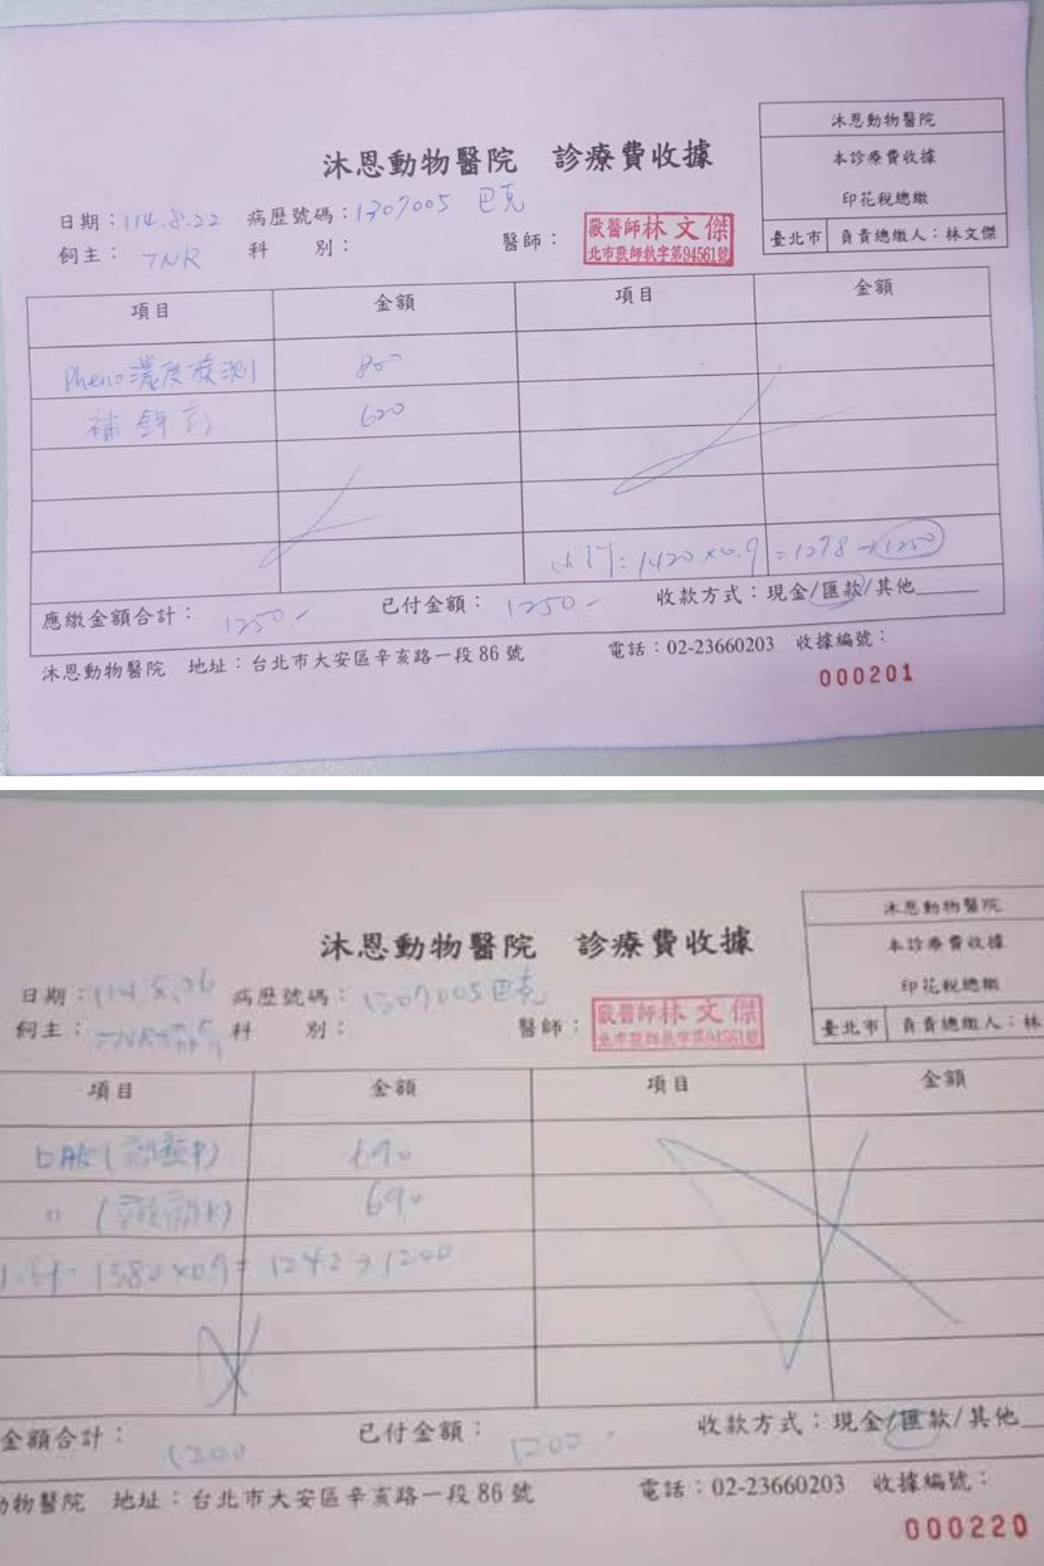 沐恩動物醫院
本診療費收據
印花稅總繳
臺北市 負責總繳人：林文傑
沐恩動物醫院 診療費收據
日期：114.8.22 病歷號碼：1307005 巴克
飼主：TNR 科 別： 醫師：
獸醫師林文傑
北市獸師執字第94561號
項目 金額 項目 金額
Pheno濃度檢測 800
補鉀劑 620
小計：1420×0.9=1278→1250
應繳金額合計：1250.- 已付金額：1250.- 收款方式：現金/匯款/其他
沐恩動物醫院 地址：台北市大安區辛亥路一段86號 電話：02-23660203 收據編號：
000201
沐恩動物醫院
本診療費收據
印花稅總繳
臺北市 負責總繳人：林
沐恩動物醫院 診療費收據
日期：114.8.26 病歷號碼：1307005巴克
飼主：科 別： 醫師：
獸醫師林文傑
北市獸師執字第94561號
項目 金額 項目 金額
690
690
1380×0.9=1242→1200
金額合計：1200 已付金額：1200.- 收款方式：現金/匯款/其他
物醫院 地址：台北市大安區辛亥路一段86號 電話：02-23660203 收據編號：
000220